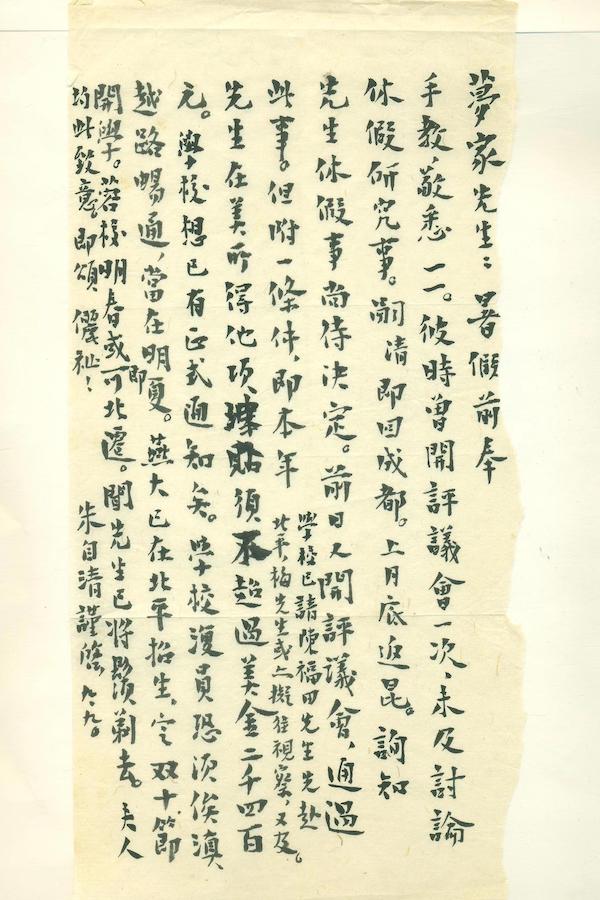 夢家先生：暑假前奉
手教，敬悉一一。彼時曾開評議會一次，未及討論
休假研究事。嗣清即回成都。上月底返昆。詢知
先生休假事尚待決定。前日又開評議會，通過
此事。但附一條件，即本年
學校已請陳福田先生先赴
北平，梅先生或亦擬往視察，又及。
先生在美所得他項津貼須不超過美金二千四百
元。學校想已有正式通知矣。學校復員恐須俟滇
越路暢通，當在明夏。燕大已在北平招生，定双十節即
開學。蓉校明春或即可北遷。聞先生已將鬍須剃去。夫人
均此致意，即頌 儷祉！
朱自清謹啓 九、九。